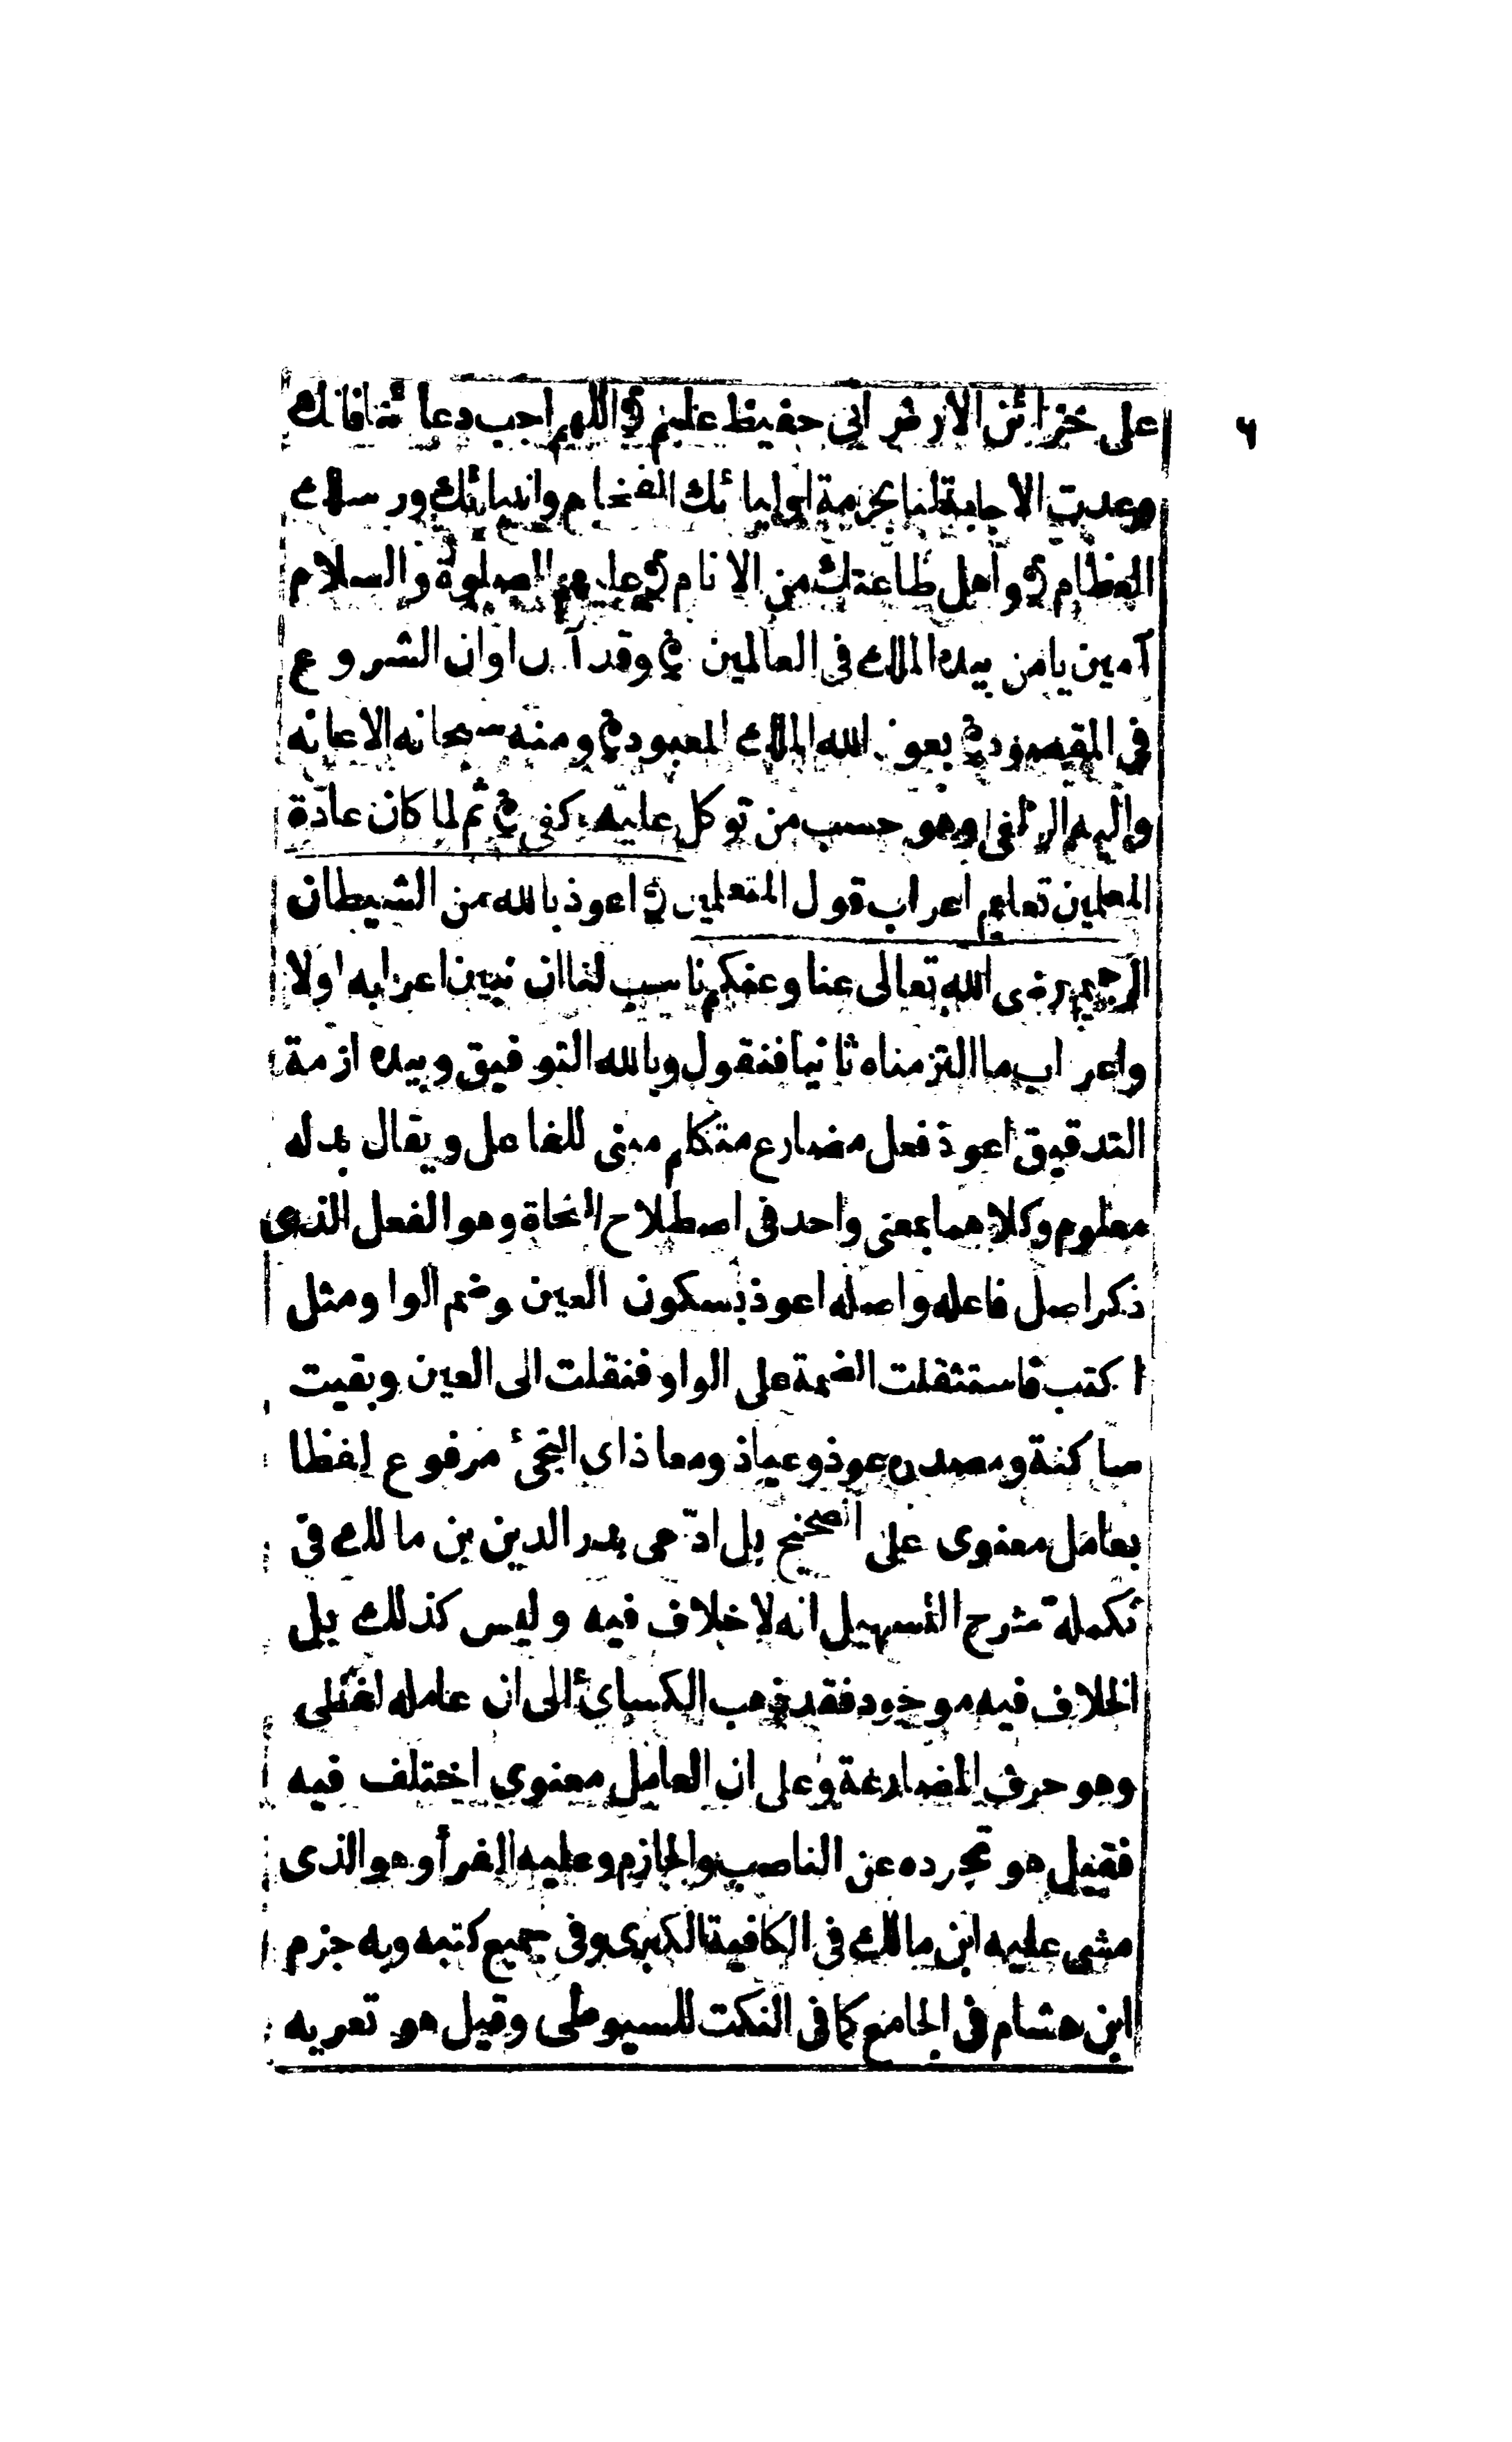 ٦
على خزائن الارض انى حفيظ عليم ۞ اللهم اجب دعائنا فانك
وعدت الاجابة لنا بحرمة اوليائك الفخام وانبيائك ورسلك
العظام ۞ واهل طاعتك من الانام ۞ عليهم الصلوة والسلام
آمين يا من بيده الملك فى العالمين ۞ وقد آن اوان الشروع
فى المقصود ۞ بعون الله الملك المعبود ۞ ومنه سبحانه الاعانه
واليه الزلفى وهو حسب من توكل عليه كفى ۞ ثم لما كان عادة
المعلمين تعليم اعراب قول المتعلمين ۞ اعوذ بالله من الشيطان
الرجيم رضى الله تعالى عنا وعنكم ناسب لنا ان نبين اعرابه اولا
واعراب ما التزمناه ثانيا فنقول وبالله التوفيق وبيده ازمة
التدقيق اعوذ فعل مضارع متكلم مبنى للفاعل ويقال بدله
معلوم وكلاهما بمعنى واحد فى اصطلاح النحاة وهو الفعل الذى
ذكر اصل فاعله واصله اعوذ بسكون العين وضم الواو مثل
اكتب فاستثقلت الضمة على الواو فنقلت الى العين وبقيت
ساكنة ومصدره عوذ وعياذ ومعاذ اى التجئ مرفوع لفظا
بعامل معنوى على الصحيح بل ادّعى بدر الدين بن مالك فى
تكملة شرح التسهيل انه لا خلاف فيه وليس كذلك بل
الخلاف فيه موجود فقد ذهب الكسائ الى ان عامله لفظى
وهو حرف المضارعة وعلى ان العامل معنوى اختلف فيه
فقيل هو تجرده عن الناصب والجازم وعليه الفرأ وهو الذى
مشى عليه ابن مالك فى الكافية الكبرى وفى جميع كتبه وبه جزم
ابن هشام فى الجامع كما فى النكت للسيوطى وقيل هو تعريه